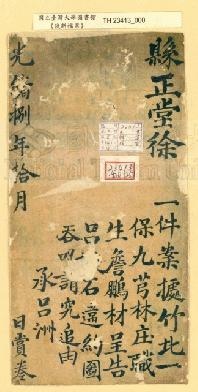 國立臺灣大學圖書館
【淡新檔案】
TH 23415_000
縣正堂徐
一件案據竹北一
保九芎林庄職
生詹鵬材呈告
呂石違約圖
吞叩請究追由
承呂洲
日賞卷
光緒捌年拾月